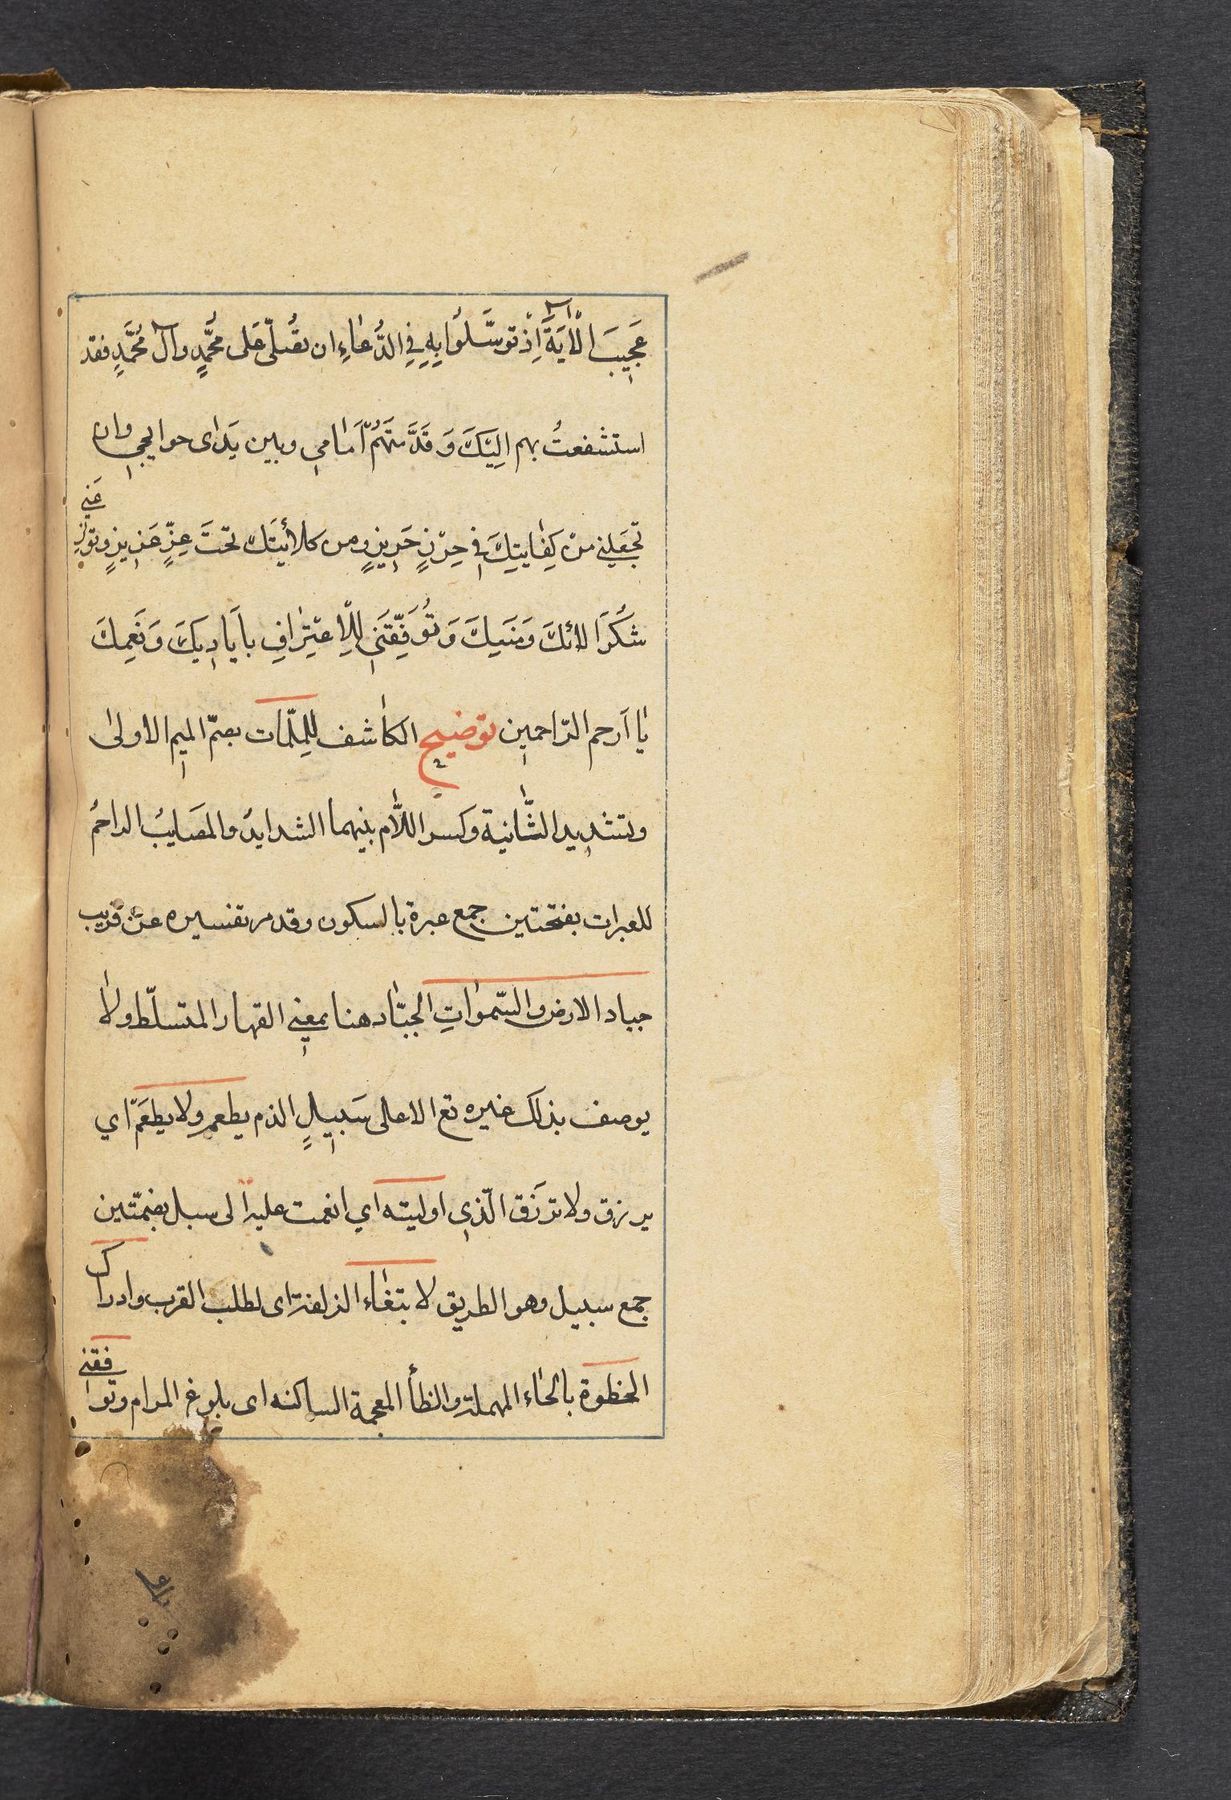 عَجِيبَ الْاٰيَةَ اِذْ تَوسَّلُوْا بِهِ فِي الدُّعَاءِ ان تُصَلّى عَلى مُحَمَّدٍ وآل مُحَمَّدٍ فقد
استشفعتُ بهم اِلَيْكَ وَ قَدَّمتَهُمْ اَمَامي وبين يَداى حوايجي وان
تجعَلني منْ كِفٰايتِكَ في حِرْزٍ حَرِيزٍ ومن كلائَيتَك تحْتَ عِزٍّ عَزِيزٍ وتوز عَني
شكْرَا لائك وَمنَنِكَ وَ تُوَفِّقَنى لِلْاِعْتِرٰافِ باَيَادِيكَ وَنَعِمِكَ
يٰا اَرحم الرّاحمين توضيح الكاشف للمِلمّات بضمّ الميم الاولىٰ
وتشديد الثّانية وكسر اللّام بينهما الشدايدُ والمصَايبُ الراحمُ
للعبرات بفتحتين جمع عبرة بالسكون وقد مر تفسيره عن قريب
جبار الارض والسّموٰاتِ الجبّار هنا بمعنى القهار المتسلّط ولا
يوصف بذلك غيره تع الاعلى سَبِيلٍ الذم يطعم ولا يطعَم اي
يرزق ولا ترزَق الّذى اوليته اي انعمت عليه الى سبل بضمّتين
جمع سبيل وهو الطريق لابتغاء الزلفة اى لطلب القرب وادراك
الحظوة بالحاء المهملة والظأ المعجمة الساكنه اى بلوغ المرام وتوا فقنى